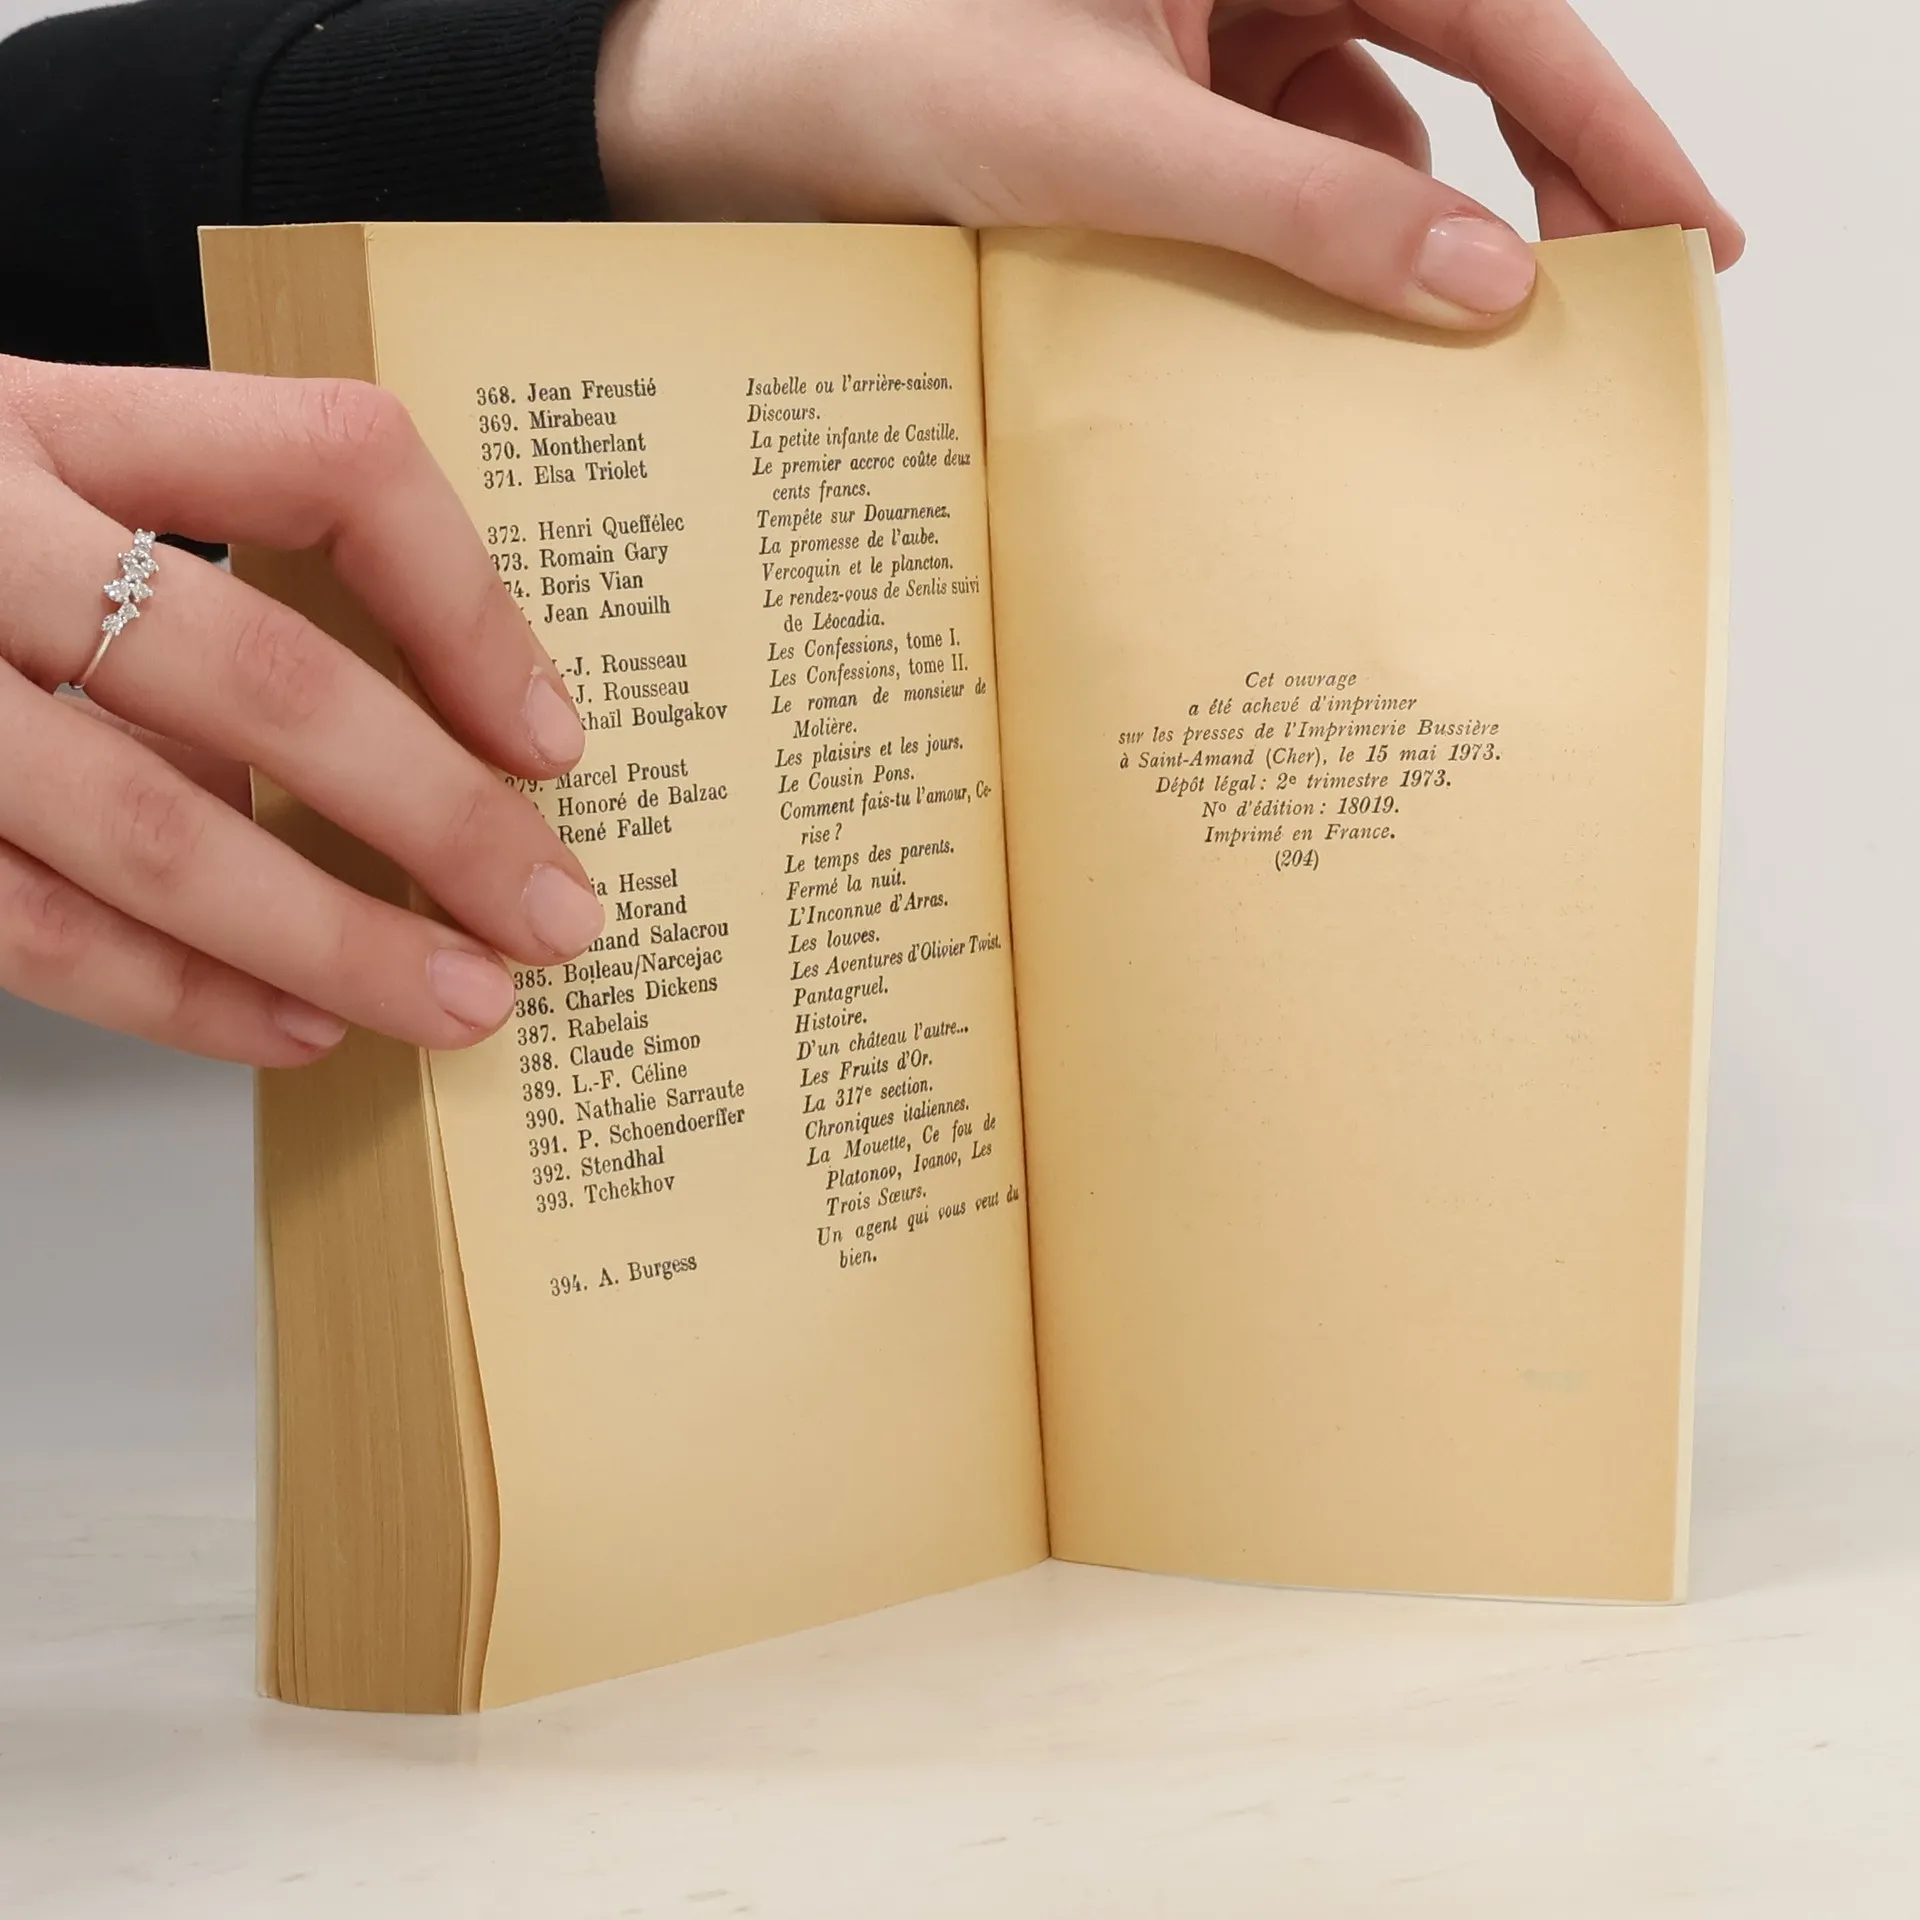 368. Jean Freustié Isabelle ou l'arrière-saison.
369. Mirabeau Discours.
370. Montherlant La petite infante de Castille.
371. Elsa Triolet Le premier accroc coûte deux
cents francs.
372. Henri Queffélec Tempête sur Douarnenez.
373. Romain Gary La promesse de l'aube.
74. Boris Vian Vercoquin et le plancton.
Jean Anouilh Le rendez-vous de Senlis suivi
de Léocadia.
.-J. Rousseau Les Confessions, tome I.
-J. Rousseau Les Confessions, tome II.
khaïl Boulgakov Le roman de monsieur de
Molière.
379. Marcel Proust Les plaisirs et les jours.
Honoré de Balzac Le Cousin Pons.
René Fallet Comment fais-tu l'amour, Ce-
rise ?
ia Hessel Le temps des parents.
Morand Fermé la nuit.
mand Salacrou L'Inconnue d'Arras.
385. Boileau/Narcejac Les louves.
386. Charles Dickens Les Aventures d'Olivier Twist.
387. Rabelais Pantagruel.
388. Claude Simon Histoire.
389. L.-F. Céline D'un château l'autre...
390. Nathalie Sarraute Les Fruits d'Or.
391. P. Schoendoerffer La 317e section.
392. Stendhal Chroniques italiennes.
393. Tchekhov La Mouette, Ce fou de
Platonov, Ivanov, Les
Trois Sœurs.
394. A. Burgess Un agent qui vous veut du
bien.
Cet ouvrage
a été achevé d'imprimer
sur les presses de l'Imprimerie Bussière
à Saint-Amand (Cher), le 15 mai 1973.
Dépôt légal : 2e trimestre 1973.
No d'édition : 18019.
Imprimé en France.
(204)